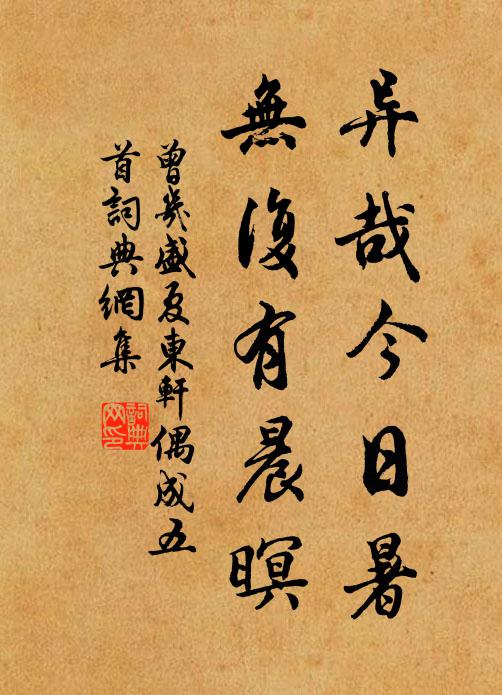 异哉今日暑
無復有晨暝
曾幾盛夏東軒偶成五
首詞典網集
詞典
网印